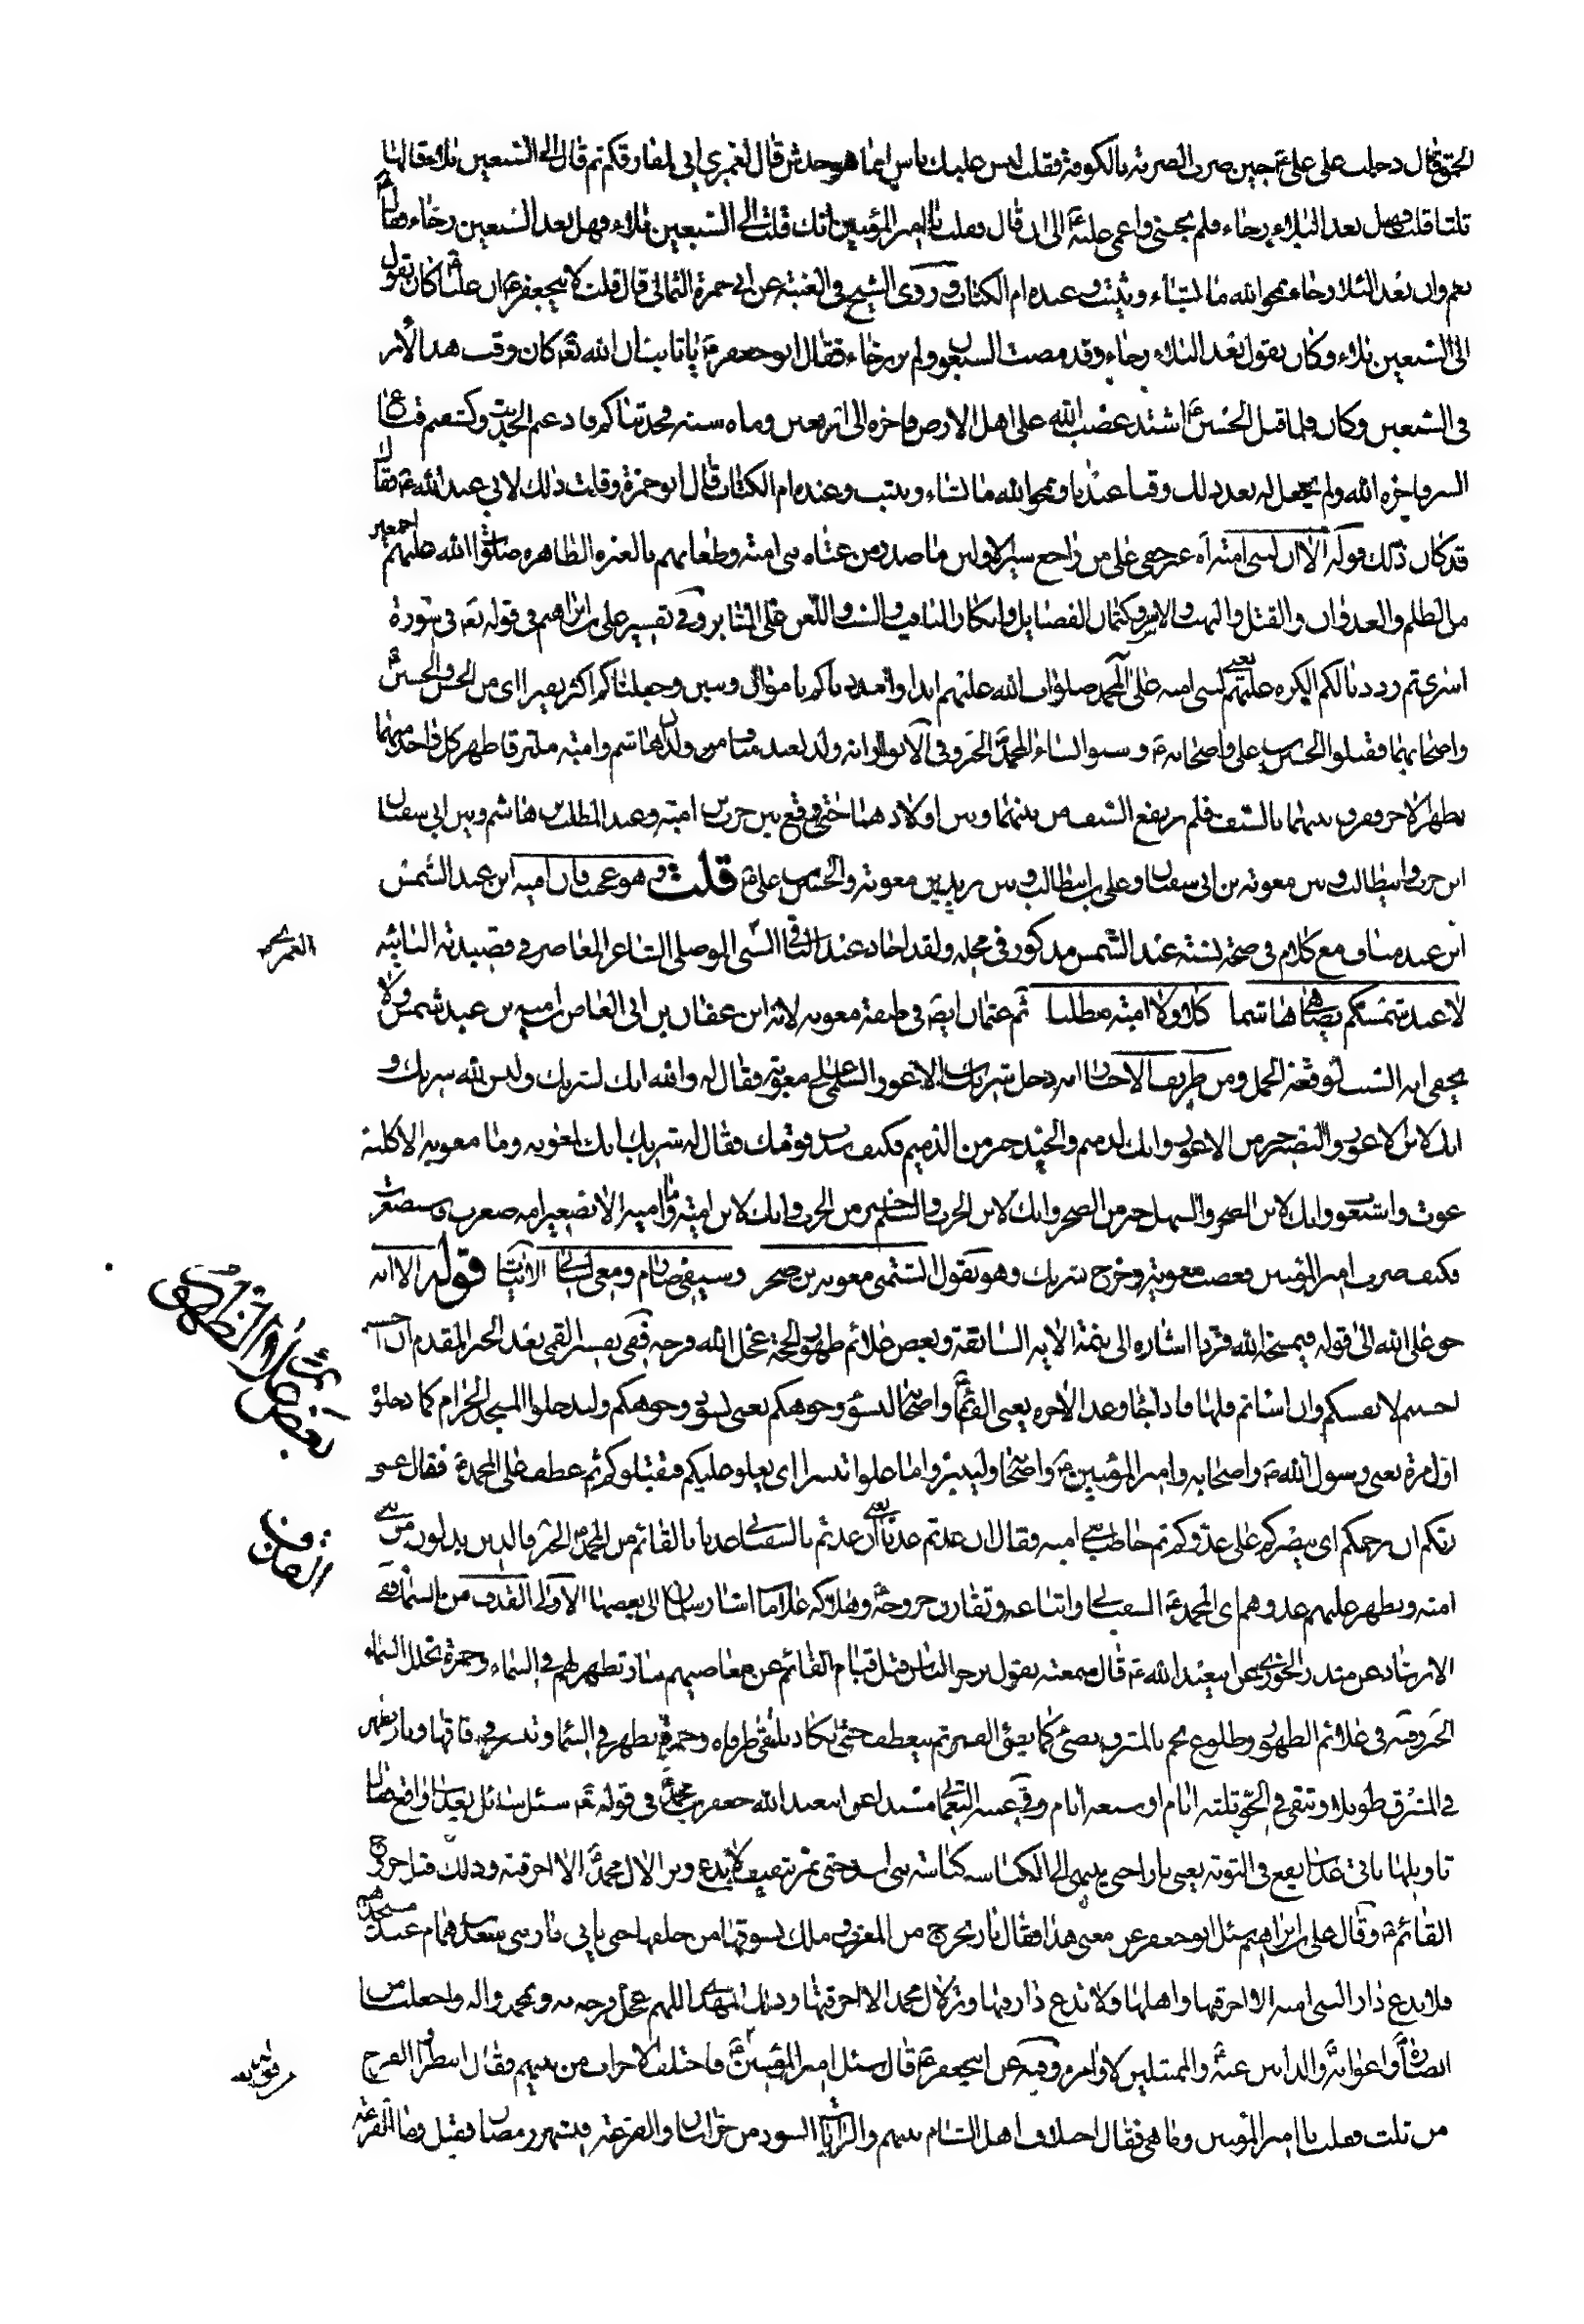 الحمق قال دخلت على علي ع حين ضرب الضربة بالكوفة فقلت ليس عليك باس انما هو خدش قال لعمري اني لمفارقكم ثم قال الى السبعين بلاء قالها
ثلثا قلت فهل بعد البلاء رخاء فلم يجبني واغمي عليه الى ان قال فقلت يا امير المؤمنين انك قلت الى السبعين بلاء فهل بعد السبعين رخاء فقال
نعم وان بعد البلاء رخاء يمحو الله ما يشاء ويثبت وعنده ام الكتاب وروى الشيخ في الغيبة عن ابي حمزة الثمالي قال قلت لابيجعفر ع ان عليا كان يقول
الى السبعين بلاء وكان يقول بعد البلاء رخاء وقد مضت السبعون ولم نر رخاء فقال ابو جعفر ع يا ثابت ان الله تع كان وقت هذا الامر
في السبعين وكان فلما قتل الحسين ع اشتد غضب الله على اهل الارض فاخره الى اربعين وماه سنة فحدثناكم فاذعتم الحديث وكشفتم قناع
السر فاخره الله ولم يجعل له بعد ذلك وقتا عندنا ويمحو الله ما يشاء ويثبت وعنده ام الكتاب قال ابو حمزة وقلت ذلك لابي عبد الله ع فقال
قد كان ذلك قوله الا ان لبني امية اه غير خفي على من راجع سير الاولين ما صدر من عتاه بني امية وطغاتهم بالعترة الطاهرة صلوات الله عليهم اجمعين
من الظلم والعدوان والقتل والنهب والاسر وكتمان الفضايل وانكار المناقب والسب واللعن على المنابر وفي تفسير علي بن ابراهيم في قوله تع في سورة
اسرى ثم رددنا لكم الكره عليهم يعني لبني امية على ال محمد صلوات الله عليهم ابدا وامددناكم باموال وبنين وجعلناكم اكثر نفيرا اي من الحسن والحسين ع
واصحابهما فقتلوا الحسين بن علي واصحابه ع وسبوا نساء ال محمد الخبر وفي الانوار انه ولد لعبد مناف ولدان هاشم وامية ملتزقا ظهر كل واحد منهما
بظهر الاخر ففرق بينهما بالسيف فلم يرتفع السيف من بينهما وبين اولادهما حتى وقع بين حرب بن امية وعبد المطلب بن هاشم وبين ابي سفيان
ابن حرب وابيطالب وبين معوية بن ابي سفيان وعلي بن ابيطالب وبين يزيد بن معوية والحسين بن علي ع قلت وهو عجيب فان امية ابن عبد الشمس
ابن عبد مناف مع كلام في صحة نسبته عبد الشمس مذكور في محله ولقد اجاد عبد الباقي السني الموصلي الشاعر المعاصر في قصيدته البائية
العمري
لا عبد شمسكم يضاهي هاشما كلا ولا امية مطلبا ثم عثمان ايضا في طبقة معوية لانه ابن عفان بن ابي العاص بن امية بن عبد شمس ولا
ومن طريف الاخبار انه دخل شريك بن الاعور السلمي على معوية فقال له والله انك لشريك وليس لله شريك و
انك لابن الاعور والبصير خير من الاعور وانك لدميم والجيد خير من الدميم فكيف سدت قومك فقال له شريك انك لمعوية وما معوية الا كلبة
عوت واستعوت وانك لابن الصخر والسهل خير من الصخر وانك لابن الحرب والسلم خير من الحرب وانك لابن امية وما امية الا تصغير امة صغرت فاستصغرت
فكيف صرت امير المؤمنين فغضب معوية وخرج شريك وهو يقول ايشتمني معوية بن صخر وسيفي صارم ومعي لساني الابيات قوله الا انه
بعض علائم الظهور
حق على الله الى قوله فيمسخه الله قردا اشاره الى تتمة الايه السابقة وبعض علائم ظهور الحجة عجل الله فرجه ففي تفسير القمي بعد الخبر المقدم ان احسنتم
احسنتم لانفسكم وان اساتم فلها فاذا جاء وعد الاخره يعني القائم ع واصحابه ليسؤوا وجوهكم يعني تسود وجوهكم وليدخلوا المسجد الحرام كما دخلوه
اول مرة يعني رسول الله ص واصحابه وامير المؤمنين ع واصحابه وليتبروا ما علوا تتبيرا اي يعلوا عليكم فيقتلوكم ثم عطف على ال محمد ع فقال عسى
ربكم ان يرحمكم اي ينصركم على عدوكم ثم خاطب بني امية فقال ان عدتم عدنا يعني ان عدتم بالسفياني عدنا بالقائم من ال محمد الخبر
امية ويظهر عليهم عدوهم اي ال محمد ع السفياني واتباعه وتقارن خروجه وهلاكه علامات اشار الى بعضها الاولى القذف من السماء ففي
القذف
الارشاد عن منذر الخوزي عن ابيعبد الله ع قال سمعته يقول يزجر الناس قبل قيام القائم عن معاصيهم بنار تظهر لهم في السماء وحمرة تجلل السماء
الخبر وفيه في علائم الظهور وطلوع نجم بالمشرق يضئ كما يضئ القمر ثم ينعطف حتى يكاد يلتقي طرفاه وحمرة يظهر في السماء وتنشر في افاقها ونار تظهر
في المشرق طويلا وتبقى في الجو ثلثة ايام او سبعة ايام وفي غيبة النعماني مسندا عن ابيعبد الله جعفر بن محمد ع في قوله تع سئل سائل بعذاب واقع قال
تاويلها ياتي عذاب يقع في الثوية يعني نارا حتى ينتهي الى الكناسة كناسة بني اسد حتى تمر بثقيف لا يدع وترا لال محمد الا احرقته وذلك قبل خروج
القائم ع وقال علي بن ابراهيم سئل ابو جعفر ع عن معنى هذا فقال نار يخرج من المغرب وملك يسوقها من خلفها حتى ياتي دار بني سعد بن همام عند مسجدهم
فلا يدع دارا لبني امية الا احرقها واهلها ولا تدع دارا فيها وتر لال محمد الا احرقتها وذلك المهدي اللهم عجل فرجه بمحمد واله واجعلنا من
انصاره واعوانه والذابين عنه والممتثلين لاوامره وفيه عن ابيجعفر ع قال سئل امير المؤمنين ع فاختلف الاحزاب من بينهم فقال انتظروا الفرج
من ثلث فقلت يا امير المؤمنين وما هي فقال اختلاف اهل الشام بينهم والرايات السود من خراسان والفزعة في شهر رمضان فقيل وما الفزعة